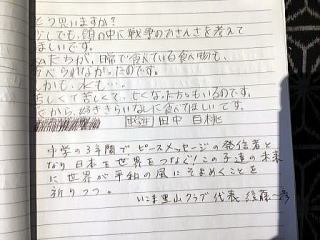 どう思いますか?
少しでも、頭の中に戦争のおさんさを考えて
ほしいです。
私たちが、日常で食べている食べ物も、
食べられなかったのです。
しかも、水も…
苦しくて苦しくて、亡くなった方ももいるのです。
だから、好ききらいなしに食べてほしいです。
田中 百桃
中学の3年間でピースメッセージの発信者と
なり日本と世界をつなぐ!この子達の未来
に世界が平和の風にそまめくことを
祈りつつ。
いこま里山クラブ 代表 後藤